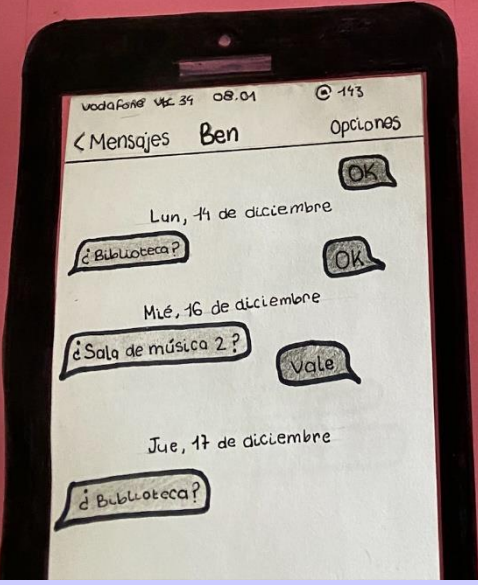 vodafone 34 08.01 @ 143
< Mensajes Ben Opciones
OK
Lun, 14 de diciembre
¿Biblioteca?
OK
Mié, 16 de diciembre
¿Sala de música 2?
Vale
Jue, 17 de diciembre
¿Biblioteca?